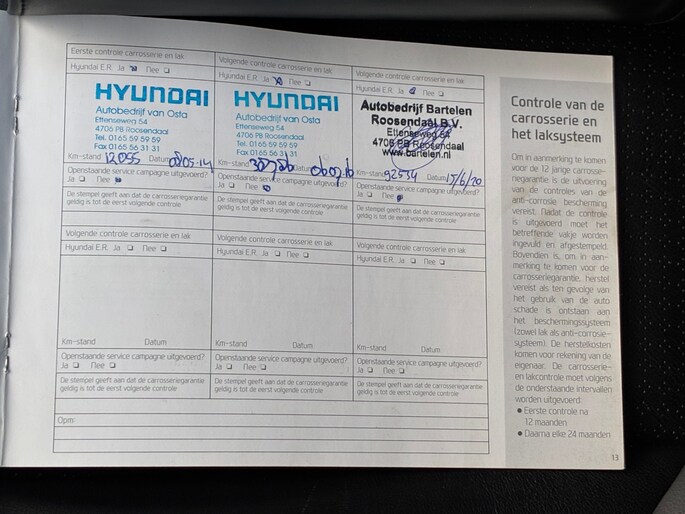 Eerste controle carrosserie en lak
Hyundai E.R. Ja Nee
HYUNDAI
Autobedrijf van Osta
Ettenseweg 54
4706 PB Roosendaal
Tel. 0165 59 59 59
Fax 0165 56 31 31
Km-stand 12055 Datum 08/05.14
Openstaande service campagne uitgevoerd?
Ja Nee
De stempel geeft aan dat de carrosseriegarantie
geldig is tot de eerst volgende controle
Volgende controle carrosserie en lak
Hyundai E.R. Ja Nee
HYUNDAI
Autobedrijf van Osta
Ettenseweg 54
4706 PB Roosendaal
Tel. 0165 59 59 59
Fax 0165 56 31 31
Km-stand Datum
Openstaande service campagne uitgevoerd?
Ja Nee
De stempel geeft aan dat de carrosseriegarantie
geldig is tot de eerst volgende controle
Volgende controle carrosserie en lak
Hyundai E.R. Ja Nee
Autobedrijf Bartelen
Roosendaal B.V.
Ettenseweg 54
4706 PB Roosendaal
www.bartelen.nl
Km-stand 92534 Datum 15/6/20
Openstaande service campagne uitgevoerd?
Ja Nee
De stempel geeft aan dat de carrosseriegarantie
geldig is tot de eerst volgende controle
Volgende controle carrosserie en lak
Hyundai E.R. Ja Nee
Km-stand Datum
Openstaande service campagne uitgevoerd?
Ja Nee
De stempel geeft aan dat de carrosseriegarantie
geldig is tot de eerst volgende controle
Volgende controle carrosserie en lak
Hyundai E.R. Ja Nee
Km-stand Datum
Openstaande service campagne uitgevoerd?
Ja Nee
De stempel geeft aan dat de carrosseriegarantie
geldig is tot de eerst volgende controle
Volgende controle carrosserie en lak
Hyundai E.R. Ja Nee
Km-stand Datum
Openstaande service campagne uitgevoerd?
Ja Nee
De stempel geeft aan dat de carrosseriegarantie
geldig is tot de eerst volgende controle
Opm:
Controle van de
carrosserie en
het laksysteem
Om in aanmerking te komen
voor de 12 jarige carrosse-
riegarantie is de uitvoering
van de controles van de
anti-corrosie bescherming
vereist. Nadat de controle
is uitgevoerd moet het
betreffende vakje worden
ingevuld en afgestempeld.
Bovendien is, om in aan-
merking te komen voor de
carrosseriegarantie, herstel
vereist als ten gevolge van
het gebruik van de auto
schade is ontstaan aan
het beschermingssysteem
(zowel lak als anti-corrosie-
systeem). De herstelkosten
komen voor rekening van de
eigenaar. De carrosserie-
en lakcontrole moet volgens
de onderstaande intervallen
worden uitgevoerd:
• Eerste controle na
12 maanden
• Daarna elke 24 maanden
13